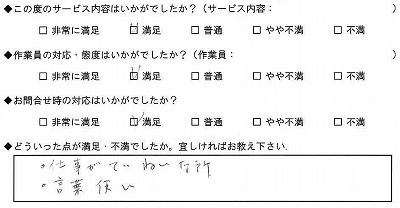 ◆この度のサービス内容はいかがでしたか？（サービス内容：　）
□ 非常に満足　□ 満足　□ 普通　□ やや不満　□ 不満
◆作業員の対応・態度はいかがでしたか？（作業員：　）
□ 非常に満足　□ 満足　□ 普通　□ やや不満　□ 不満
◆お問合せ時の対応はいかがでしたか？
□ 非常に満足　□ 満足　□ 普通　□ やや不満　□ 不満
◆どういった点が満足・不満でしたか。宜しければお教え下さい.
・仕事がていねいな所
・言葉使い